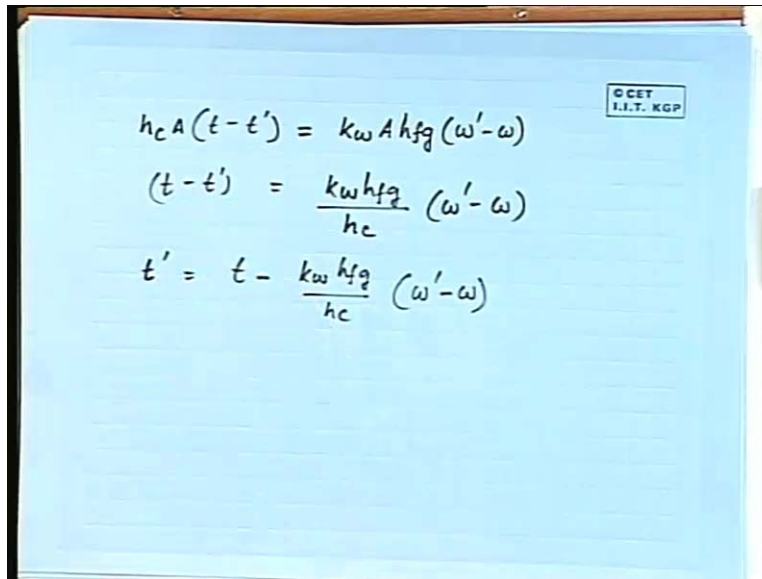 © CET
I.I.T. KGP
hc A (t - t') = kω A hfg (ω' - ω)
(t - t') = kω hfg / hc (ω' - ω)
t' = t - kω hfg / hc (ω' - ω)